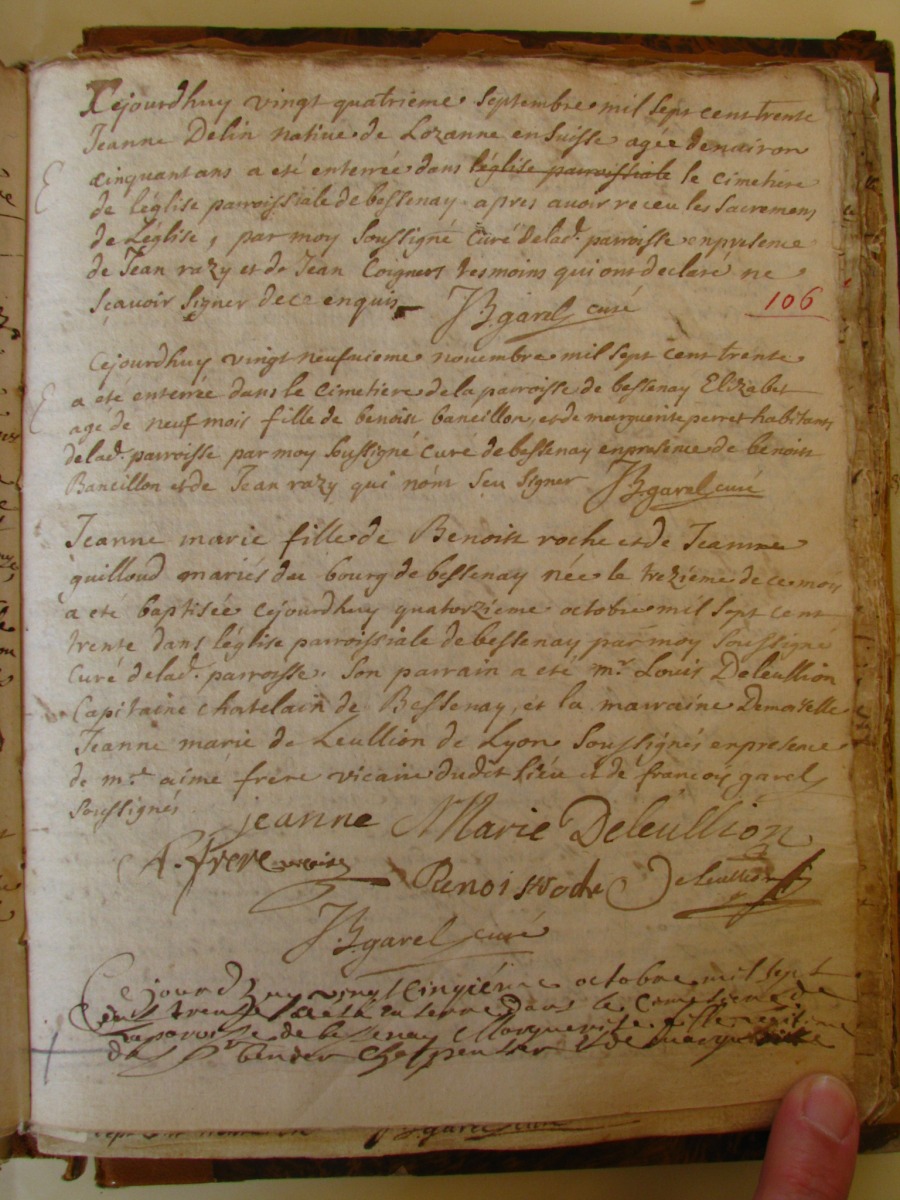 Cejourdhuy vingt quatrieme septembre mil sept cent trente
Jeanne Delin native de Lozanne en suisse agée denviron
cinquant ans a eté enterrée dans l'église parroissiale le cimetiere
de léglise parroissiale de bessenay apres avoir receu les sacremens
de Léglise, par moy soussigné curé de lad. parroisse en presence
de Jean razy et de Jean Coignet tesmoins qui ont declaré ne
sçavoir signer de ce enquis JB garel curé
106
Cejourdhuy vingt neufuieme novembre mil sept cent trente
a eté enterrée dans le cimetiere de la parroisse de bessenay Elizabet
agé de neuf mois fille de benoist bancillon et de marguerite perret habitans
de lad. parroisse par moy soussigné curé de bessenay en presence de benoist
Bancillon et de Jean razy qui nónt seu signer JB garel curé
Jeanne marie fille de Benoist roche et de Jeanne
guilloud mariés du bourg de bessenay née le trezieme de ce mois
a eté baptisée cejourdhuy quatorzieme octobre mil sept cent
trente dans léglise parroissiale de bessenay par moy soussigné
Curé de lad. parroisse. Son parrain a eté mr. Louis Deleullion
Capitaine chatelain de Bessenay, et la marraine Demoiselle
Jeanne marie de Leullion de Lyon soussignés en presence
de mre aimé frere vicaire dudit liéu et de francois garel
soussignés
jeanne Marie Deleullion
A. frere vicaire Benoist roche Deleullion
JB garel curé
Cejourdhuy vingt cinqiéme octobre mil sept
cens trente a eté enterré dans le cimetiere de
la paroisse de bessenay Marguerite fille
de Sr charpentier et de
garel curé